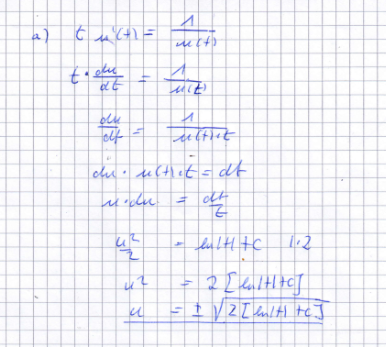 a) t u'(t) = 1/u(t)
t · du/dt = 1/u(t)
du/dt = 1/(u(t)·t)
du · u(t)·t = dt
u · du = dt/t
u²/2 = ln|t|+c |·2
u² = 2[ln|t|+c]
u = ± √(2[ln|t|+c])